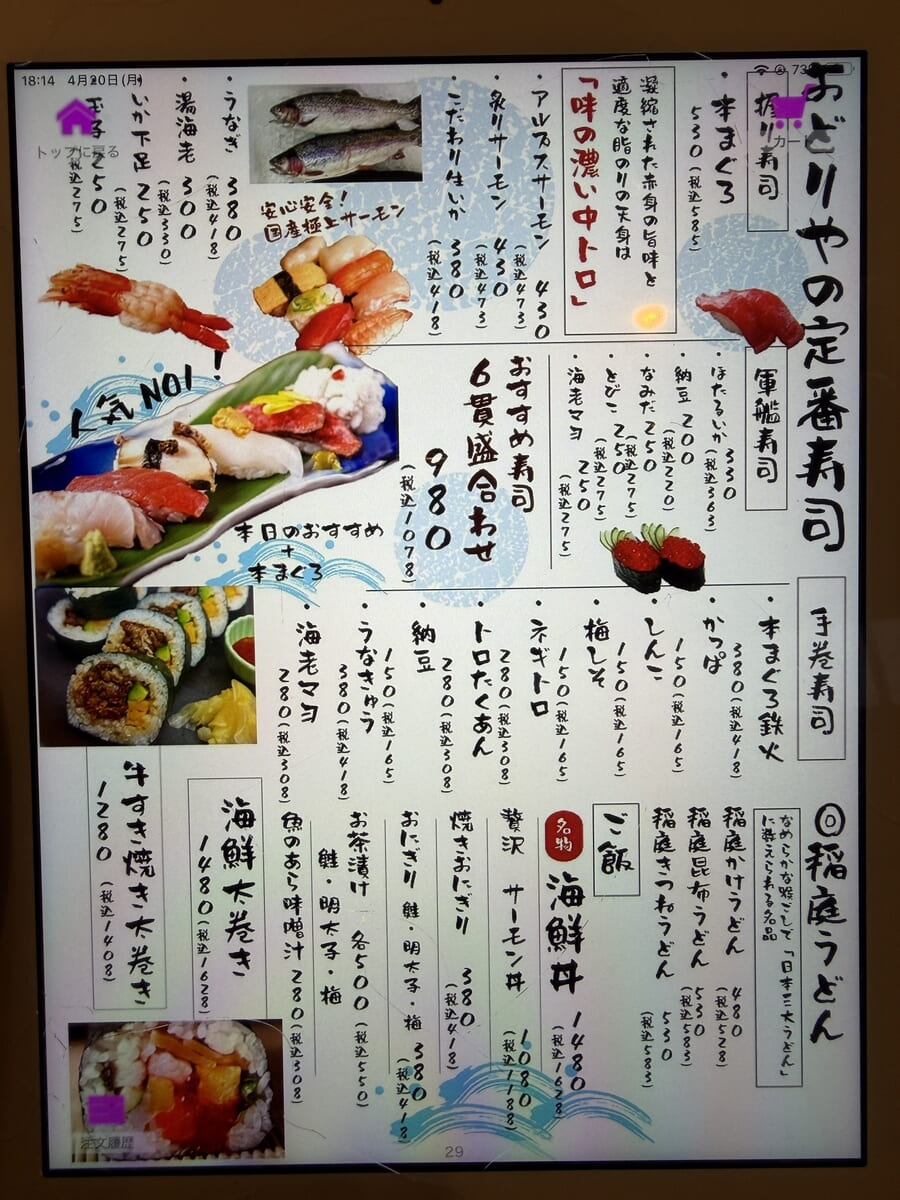 18:14 4月20日(月)
73
トップに戻る
カート
おどりやの定番寿司
握り寿司
・本まぐろ
530(税込585)
凝縮された赤身の旨味と
適度な脂のりの天身は
「味の濃い中トロ」
・アルプスサーモン 430
(税込473)
・炙りサーモン 430
(税込473)
・こだわり生いか 380
(税込418)
安心安全!
国産極上サーモン
・うなぎ 380
(税込418)
・湯海老 300
(税込330)
・いか下足 250
(税込275)
・玉子 250
(税込275)
軍艦寿司
・ほたるいか 330
(税込363)
・納豆 200
(税込220)
・なみだ 250
(税込275)
・とびこ 250
(税込275)
・海老マヨ 250
(税込275)
おすすめ寿司
6貫盛合わせ
980
(税込1078)
人気NO1!
本日のおすすめ
+
本まぐろ
手巻寿司
・本まぐろ鉄火
380(税込418)
・かっぱ
150(税込165)
・しんこ
150(税込165)
・梅しそ
150(税込165)
・ネギトロ
280(税込308)
・トロたくあん
280(税込308)
・納豆
150(税込165)
・うなきゅう
380(税込418)
・海老マヨ
280(税込308)
◎稲庭うどん
なめらかな喉ごしで「日本三大うどん」
に数えられる名品
稲庭かけうどん 480
(税込528)
稲庭昆布うどん 530
(税込583)
稲庭きつねうどん 530
(税込583)
ご飯
名物 海鮮丼 1480
(税込1628)
贅沢 サーモン丼 1080
(税込1188)
焼きおにぎり 380
(税込418)
おにぎり 鮭・明太子・梅 380
(税込418)
お茶漬け 各500(税込550)
鮭・明太子・梅
魚のあら味噌汁 280(税込308)
海鮮太巻き
1480(税込1628)
牛すき焼き太巻き
1280(税込1408)
注文履歴
29